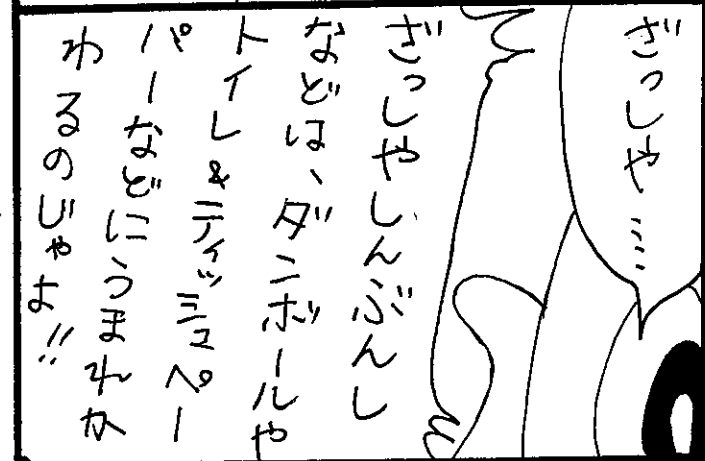 ざっしや…
ざっしやしんぶんし
などは、ダンボールや
トイレ&ティッシュペー
パーなどにうまれか
わるのじゃよ!!